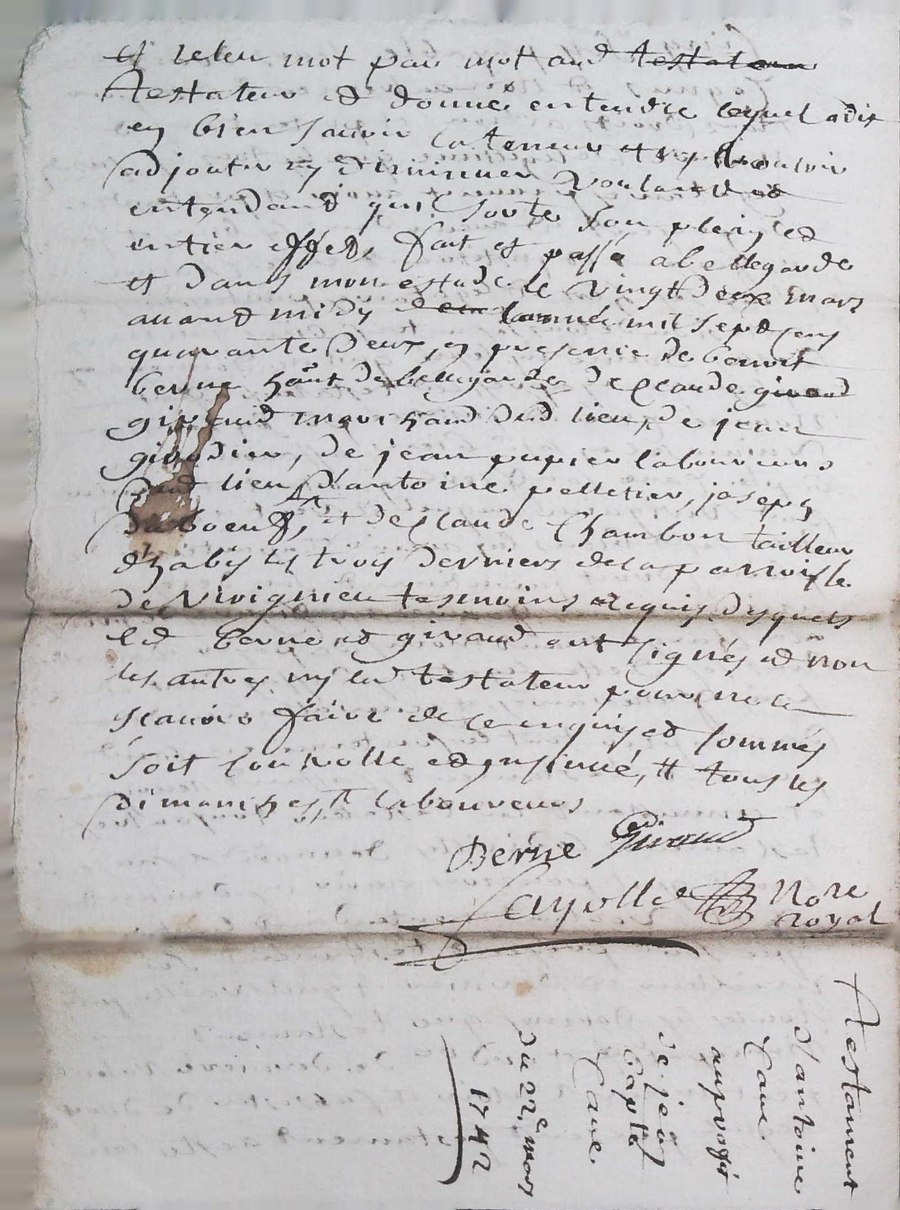 et releu mot par mot aud testateur
testateur et donné entendre lequel a dit
en bien scavoir la teneur et ny vouloir
adjouter ny diminuer voulant et
entendant quil sorte son plein et
entier effet, fait et passé a bellegarde
et dans mon estude le vingt deux mars
avant midy lannée mil sept cens
quarante deux, en presence de benoit
berne de bellegarde de claude giraud
giraud marchand dud lieu, de jean
girodier, de jean pupier laboureurs
dud lieu d'antoine pelletier, joseph
duboeuf, et de claude Chambon tailleur
d'habis les trois derniers de la parroisse
de Virignieu tesmoins requis desquels
led berne et giraud ont signés et non
les autres ny led testateur pour ne le
scavoir faire de ce enquis et sommés
soit controllé et insinué, tt tous les
dimanches tt laboureurs
Berne Giraud
Fayolle Nore
royal
Testament
d'antoine
Cave
au proffit
de jean
bapte
Cave
du 22e mars
1742